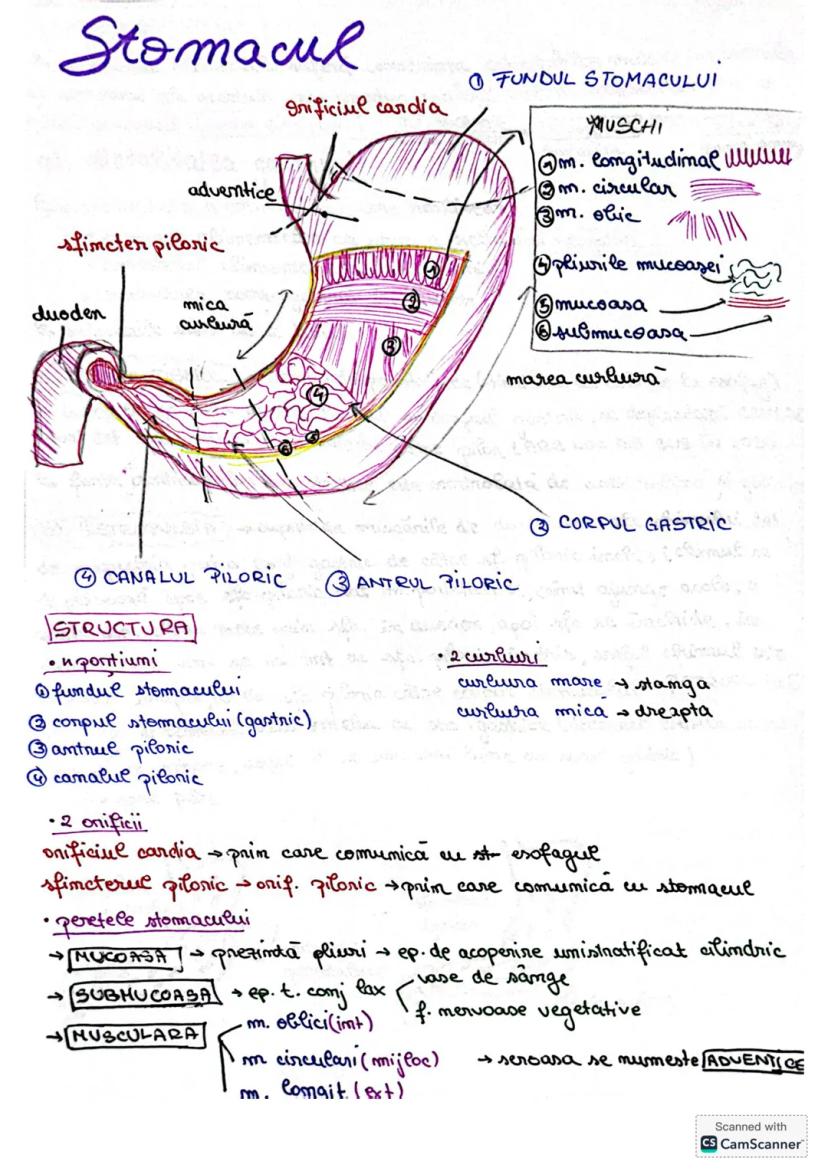 Stomacul
① FUNDUL STOMACULUI
orificiul cardia
MUSCHI
① m. longitudinal
② m. circular
③ m. oblic
④ pliurile mucoasei
⑤ mucoasa
⑥ submucoasa
adventice
sfincter piloric
duoden
mica curbură
①
②
③
④
⑥ ⑤
marea curbură
② CORPUL GASTRIC
④ CANALUL PILORIC
③ ANTRUL PILORIC
STRUCTURA
• 4 porțiuni
① fundul stomacului
② corpul stomacului (gastric)
③ antrul piloric
④ canalul piloric
• 2 curburi
curbura mare → stanga
curbura mica → dreapta
• 2 orificii
orificiul cardia → prin care comunică cu esofagul
sfincterul piloric → orif. piloric → prin care comunică cu stomacul
• peretele stomacului
→ MUCOASA → prezintă pliuri → ep. de acoperire unistratificat cilindric
→ SUBMUCOASA → ep. t. conj lax
vase de sânge
f. nervoase vegetative
→ MUSCULARA
m. oblici (int)
m circulari (mijloc)
m. longit (ext)
→ seroasa se numeste ADVENTICE
Scanned with
CS CamScanner